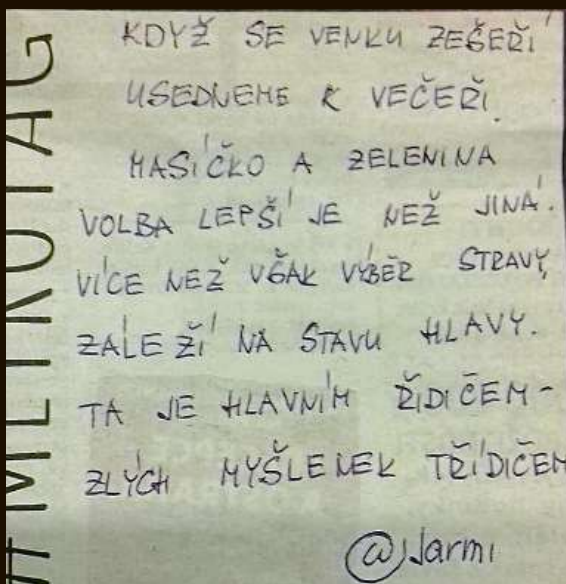 #METROTAG
KDYŽ SE VENKU ZEŠEŘÍ
USEDNEME K VEČEŘI.
MASÍČKO A ZELENINA
VOLBA LEPŠÍ JE NEŽ JINÁ.
VÍCE NEŽ VŠAK VÝBĚR STRAVY,
ZÁLEŽÍ NA STAVU HLAVY.
TA JE HLAVNÍM ŘIDIČEM-
ZLÝCH MYŠLENEK TŘÍDIČEM
@Jarmi